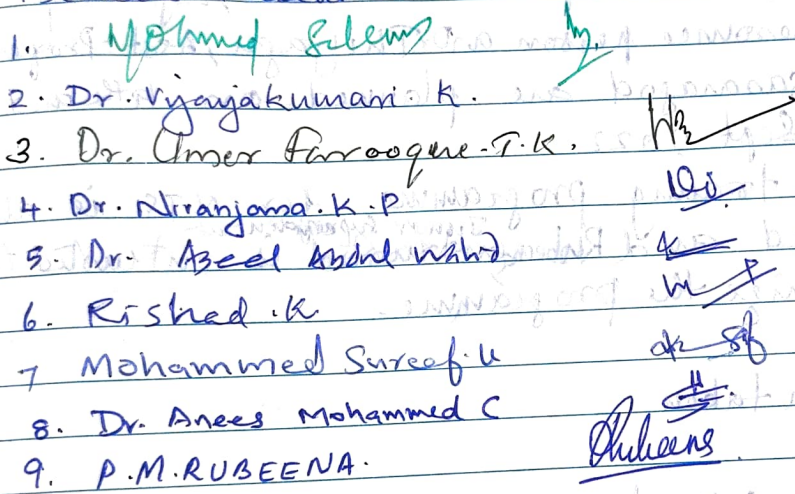 1. Mohmed Saleem
2. Dr. Vijayakumari. K.
3. Dr. Umer Farrooque. T.K.
4. Dr. Niranjana. K. P
5. Dr. Azeel Abdul Wahid
6. Rishad . K
7 Mohammed Sureef. U
8. Dr. Anees Mohammed C
9. P.M. RUBEENA.